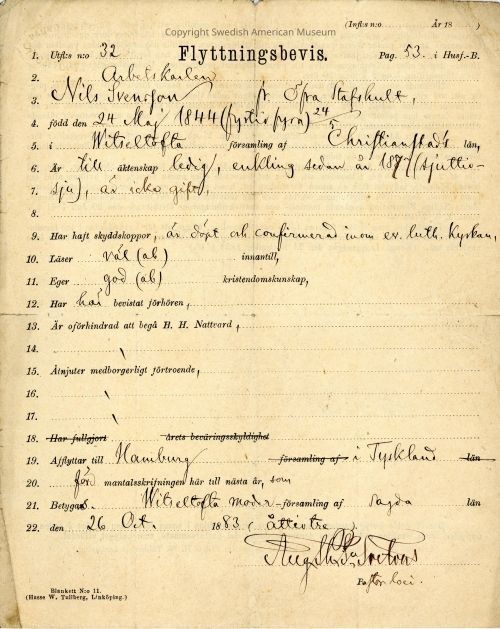 Copyright Swedish American Museum
(Inflt. n:o År 18 )
1. Utflt. n:o 32 Flyttningsbevis. Pag. 53. i Husf.-B.
2. Arbetskarlen
3. Nils Svensson fr. Öfra Stafshult,
4. född den 24 Maj 1844 (fyrtio fyra) 24/5
5. i Witseltofta församling af Christianstads län,
6. Är till äktenskap ledig, enkling sedan år 1877 (sjuttio-
7. sju), är icke gift,
8.
9. Har haft skyddskoppor, är döpt och confirmerad inom ev. luth. Kyrkan,
10. Läser väl (ab) innantill,
11. Eger god (ab) kristendomskunskap,
12. Har här bevistat förhören,
13. Är oförhindrad att begå H. H. Nattvard,
14.
15. Åtnjuter medborgerligt förtroende,
16.
17.
18. Har fullgjort årets beväringsskyldighet
19. Afflyttar till Hamburg församling af i Tyskland län
20. förd mantalsskrifningen här till nästa år, som
21. Betygas. Witseltofta moder-församling af sagda län
22. den 26 Oct. 1883 (åttiotre)
Pastor loci.
Blankett N:o 11.
(Hasse W. Tullberg, Linköping.)